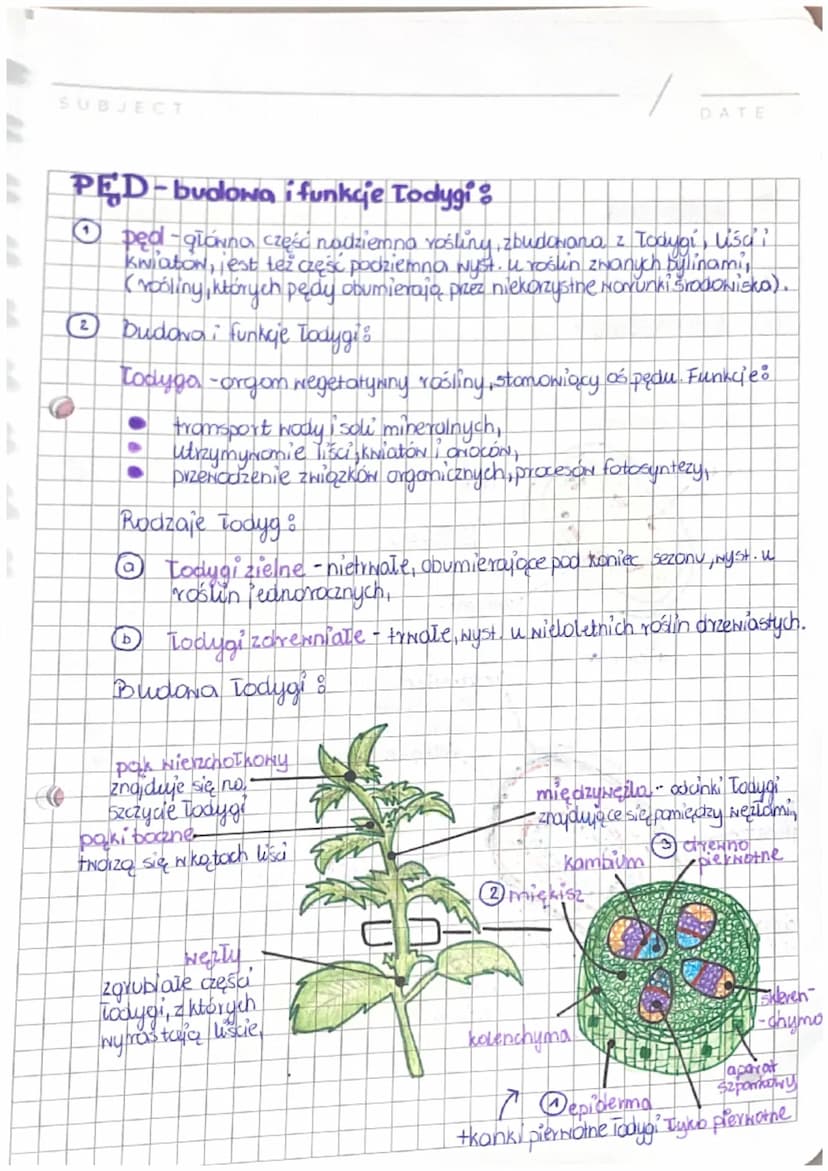 SUBJECT
DATE
PĘD - budowa i funkcje łodygi:
1 pęd - główna część nadziemna rośliny, zbudowana z łodygi, liści i
kwiatów, jest też część podziemna wyst. u roślin zwanych bylinami,
(rośliny, których pędy obumierają przez niekorzystne warunki środowiska).
2 budowa i funkcje łodygi:
łodyga - organ wegetatywny rośliny, stanowiący oś pędu. Funkcje:
transport wody i soli mineralnych,
utrzymywanie liści, kwiatów i owoców,
przewodzenie związków organicznych, procesów fotosyntezy,
Rodzaje łodyg:
a łodygi zielne - nietrwałe, obumierające pod koniec sezonu, wyst. u
roślin jednorocznych,
b łodygi zdrewniałe - trwałe, wyst. u wieloletnich roślin drzewiastych.
Budowa łodygi:
pąk wierzchołkowy
znajduje się na
szczycie łodygi
pąki boczne
tworzą się w kątach liści
węzły
zgrubiałe części
łodygi, z których
wyrastają liście,
międzywęźla - odcinki łodygi
znajdujące się pomiędzy węzłami,
3 drewno
pierwotne
kambium
2 miękisz
skleren-
-chyma
kolenchyma
aparat
szparkowy
1 epiderma
łyko pierwotne
tkanki pierwotne łodygi